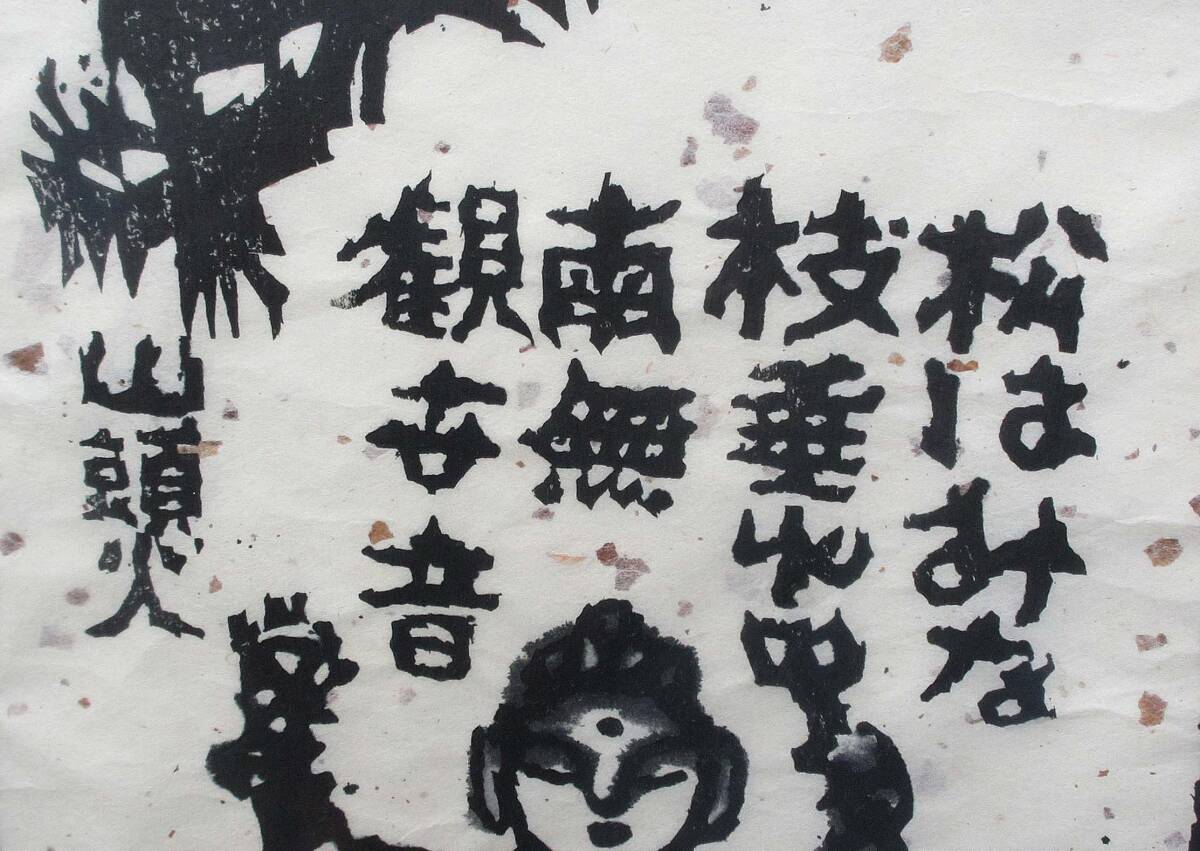 松はみな
枝垂れて
南無
観世音
山頭火